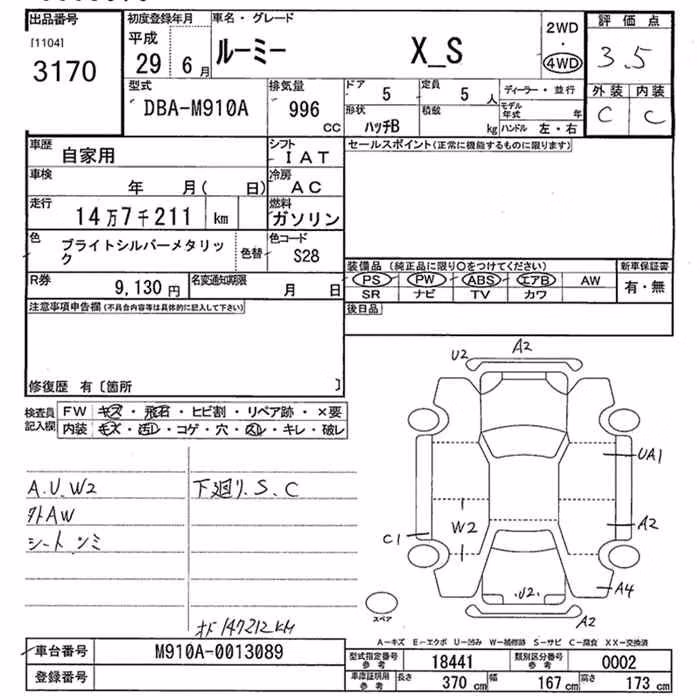 出品番号 初度登録年月 車名・グレード 2WD 評価点
[1104] 平成 ルーミー X_S ・ 3.5
3170 29 6月 4WD
型式 排気量 ドア 5 定員 5人 ディーラー・並行 外装 内装
DBA-M910A 996 CC 形状 ハッチB 積載 kg モデル年式 年 C C
ハンドル 左・右
車歴 自家用 シフト IAT セールスポイント(正常に機能するものに限ります)
車検 年 月( 日) 冷房 AC
走行 14万7千211 km 燃料 ガソリン
色 ブライトシルバーメタリック 色替 色コード S28
装備品 (純正品に限り○をつけてください) 新車保証書
R券 9,130円 名変通知期限 月 日 PS PW ABS エアB AW 有・無
SR ナビ TV カワ
注意事項申告欄(不具合内容等は具体的に記入して下さい) 後日品
修復歴 有〔箇所 〕
検査員記入欄 FW キズ・飛石・ヒビ割・リペア跡・×要
内装 キズ・汚レ・コゲ・穴・スレ・キレ・破レ
U2 A2
UA1
A.U.W2 下廻り.S.C
外AW A2
シートシミ C1 W2
A4
U2
スペア A2
オド147212KM
A-キズ E-エクボ U-凹み W-補修跡 S-サビ C-腐食 XX-交換済
車台番号 M910A-0013089 型式指定番号 参考 18441 類別区分番号 参考 0002
登録番号 車庫証明用 参考 長さ 370 cm 幅 167 cm 高さ 173 cm